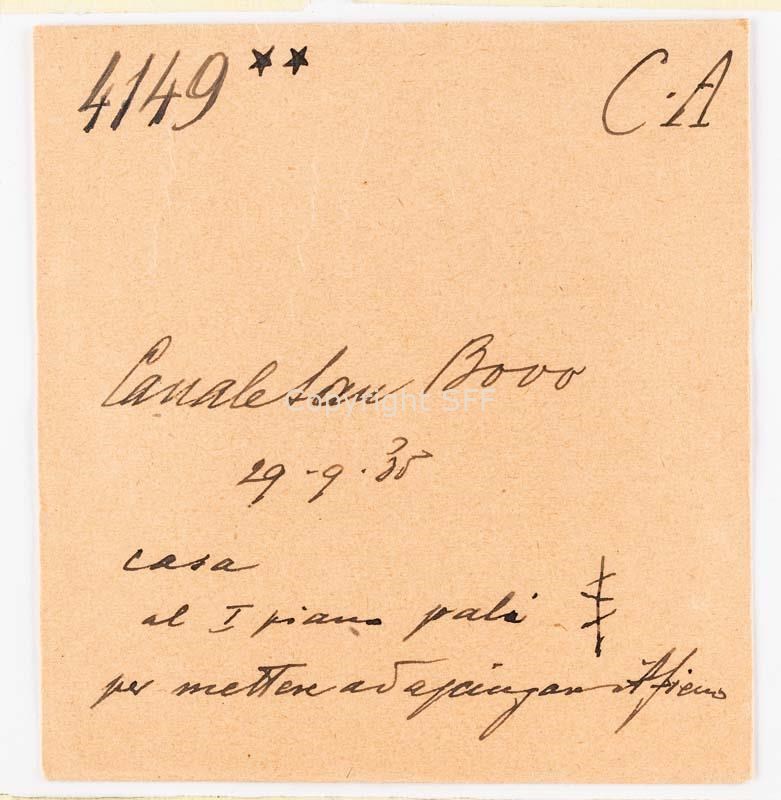 4149** C.A
Canale San Bovo
Copyright SFF
29-9-35
casa
al I piano pali
per mettere ad asciugare il fieno